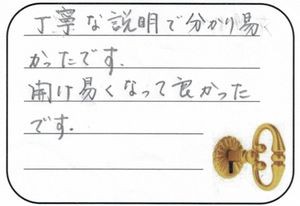 丁寧な説明で分かり易
かったです.
開け易くなって良かった
です.